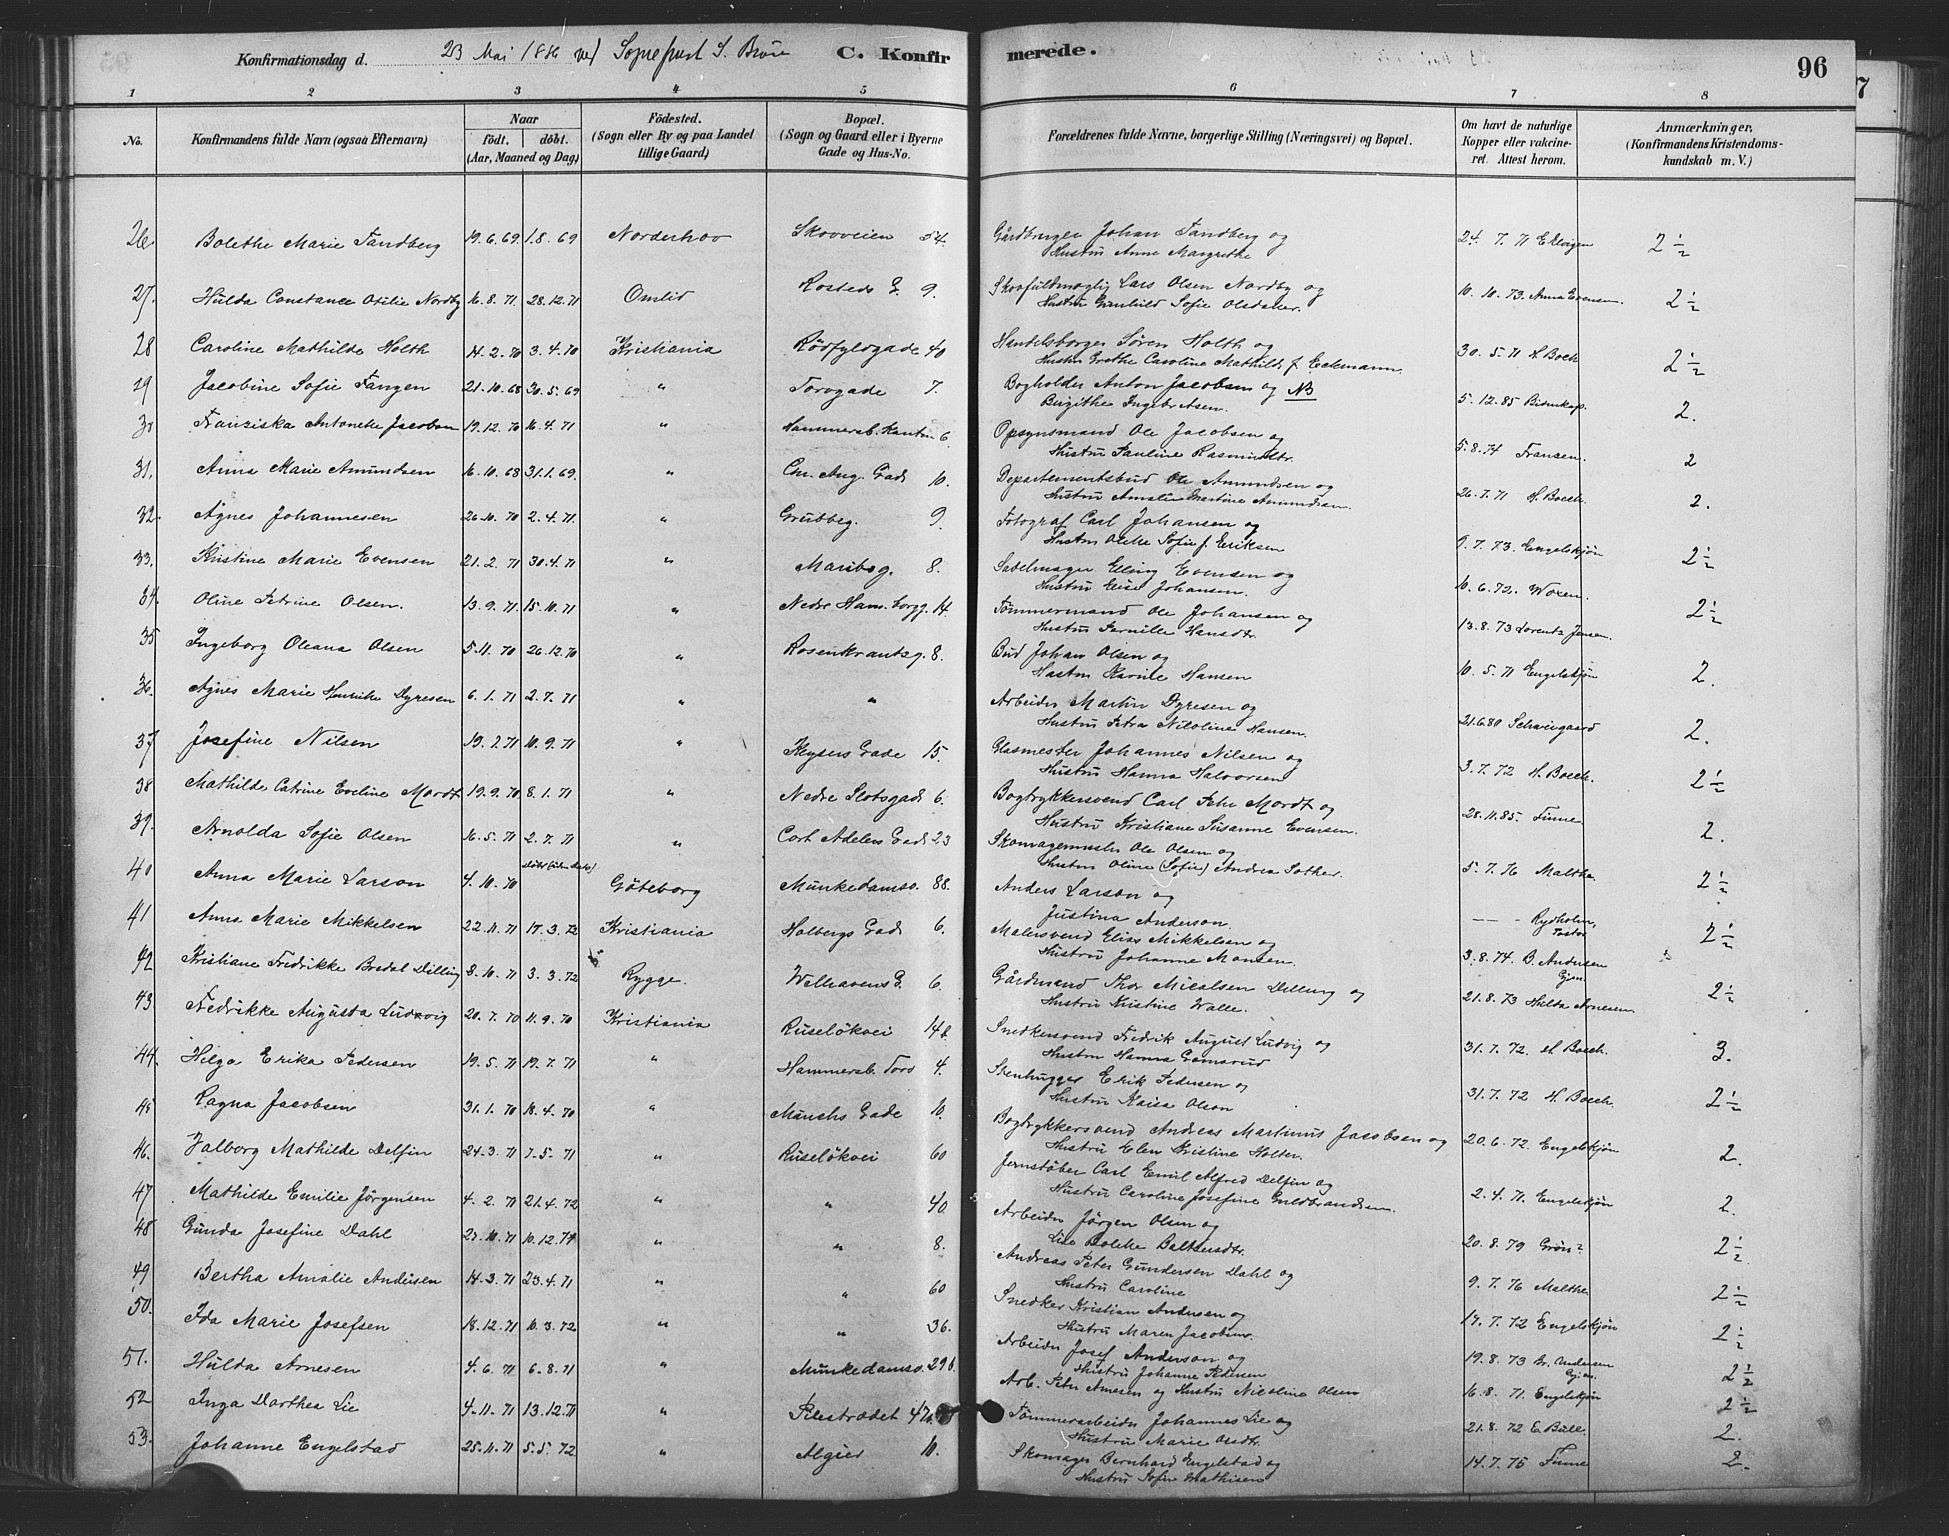 Konfirmationsdag d. 23 Mai 1886 ved Sognepræst S. Brun C. Konfirmerede. 96
1 2 3 4 5 6 7 8
No. Konfirmandens fulde Navn (ogsaa Efternavn) Naar födt. döbt. (Aar, Maaned og Dag) Födested. (Sogn eller By og paa Landet tillige Gaard) Bopæl. (Sogn og Gaard eller i Byerne Gade og Hus-No. Forældrenes fulde Navne, borgerlige Stilling (Næringsvei) og Bopæl. Om havt de naturlige Kopper eller vakcineret. Attest herom. Anmærkninger, (Konfirmandens Kristendomskundskab m. V.)
26. Bolethe Marie Tandberg 19.6.69. 1.8.69 Norderhov Skovveien 54. Gårdbruger Johan Tandberg og Hustru Anne Margrethe 24.7.71 Ellvigen 2 1/2
27. Hulda Constance Otilie Nordby 16.8.71. 28.12.71 Omlid Rosteds G. 9. Skovfuldmægtig Lars Olsen Nordby og Hustru Gunhild Sofie Olsdatter. 10.10.73. Anna Evensen. 2 1/2
28 Caroline Mathilde Holth 14.2.70 3.4.70 Kristiania Rödfyldgade 40 Handelsborger Søren Holth og Hustru Grethe Caroline Mathilde f. Eckmann. 30.5.71 H. Boeck 2 1/2
29 Jacobine Sofie Tangen 21.10.68 30.5.69 " Torvgade 7. Bogholder Anton Jacobsen og NB Birgithe Ingebretsen. 5.12.85 Bidenkap. 2.
30 Franziska Antonette Jacobsen 19.12.70 16.4.71 " Hammersb. Kanten 6 Opsynsmand Ole Jacobsen og Hustru Pauline Rasmusdtr. 5.8.74 Fransen. 2
31. Anna Marie Amundsen 16.10.68 31.1.69. " Chr. Aug. Gade 10. Departementsbud Ole Amundsen og Hustru Amalie Martine Amundsen. 26.7.71 H. Boeck. 2.
32. Agnes Johannesen 26.10.70 2.4.71. " Grubbeg. 9. Fotograf Carl Johansen og Hustru Olette Sofie f. Eriksen 9.7.73 Engelskjøn 2 1/2
33. Kristine Marie Evensen 21.2.71 30.4.71 " Maribog. 8. Sadelmager Elling Evensen og Hustru Elise Johansen. 10.6.72. Woxen. 2 1/2
34. Oline Petrine Olsen. 13.9.71 15.10.71 " Nedre Ham. borgg. 14. Tømmermand Ole Johansen og Hustru Pernille Hansdtr. 13.8.73 Lorentz Jensen. 2 1/2
35 Ingeborg Oleana Olsen 5.11.70 26.12.70 " Rosenkrantzg. 8. Bud Johan Olsen og Hustru Karine Hansen 10.5.71 Engelskjøn 2.
36. Agnes Marie Henrikke Dyresen 6.1.71 2.7.71 " " Arbeider Martin Dyresen og Hustru Petra Nicoline Hansen. 21.6.80 Schweigaard 2.
37 Josefine Nilsen 19.2.71 10.9.71 " Keysers Gade 15. Glasmester Johannes Nilsen og Hustru Hanna Halvorsen 3.7.72 H. Boeck. 2 1/2
38 Mathilde Catrine Eveline Mordt 19.9.70 8.1.71 " Nedre Slotsgade 6. Bogtrykkersvend Carl Peter Mordt og Hustru Kristiane Susanne Evensen. 28.11.85 Finne 2.
39. Arnolda Sofie Olsen 16.5.71 2.7.71 " Cort Adelers Gade 23 Skomagermester Ole Olsen og Hustru Oline (Sofie) Andrea Sother. 5.7.76 Malthe. 2 1/2
40 Anna Marie Larson 4.10.70 Göteborg Munkedamsv. 88. Anders Larson og Justina Anderson. — — Rydholm, Pastor 2 1/2
41 Anna Marie Mikkelsen 22.11.71 17.3.72 Kristiania Holbergs Gade 6. Malersvend Elias Mikkelsen og Hustru Johanne Monsen. 3.8.74. B. Andersen Gjm. 2 1/2
42 Kristiane Fredrikke Bredal Dilling 8.10.71 3.3.72 Rygge. Welhavens G. 6. Gårdmand Thor Micalsen Dilling og Hustru Kristine Walle. 21.8.73 Hilda Arnesen. 2 1/2
43 Fedrikke Augusta Ludvig 20.7.70 11.9.70 Kristiania Ruseløkvei 14b. Snedkersvend Fredrik August Ludvig og Hustru Hanna Gamarud 31.7.72. H. Boeck. 3.
44. Helga Erika Pedersen 19.5.71 19.7.71 " Hammersb. Torv 4. Stenhugger Erik Pedersen og Hustru Kaisa Olson 31.7.72 H. Boeck. 2 1/2
45 Ragna Jacobsen 31.1.70 18.4.70 " Munchs Gade 10. Bogtrykkersvend Andreas Martinus Jacobsen og Hustru Elen Kristine Holter. 20.6.72. Engelskjøn 2.
46. Valborg Mathilde Delfin 24.3.71 7.5.71 " Ruseløkvei 60 Jernstøber Carl Emil Alfred Delfin og Hustru Caroline Josefine Guldbrandsen. 2.4.71. Engelskjøn 2.
47 Mathilde Emilie Jörgensen 4.2.71 21.4.72 " " 40. Arbeider Jörgen Olsen og Lise Bolette Baltsersdtr. 20.8.79 Grøn? 2 1/2
48 Gunda Josefine Dahl 27.10.71 10.12.71 " " 8. Andreas Peter Gundersen Dahl og Hustru Caroline 9.7.76 Malthe 2 1/2
49 Bertha Amalie Andersen 14.3.71 23.4.71 " " 60 Snedker Kristian Andersen og Hustru Maren Jacobsen. 17.7.72 Engelskjøn 2 1/2
50. Ida Marie Josefsen 18.12.71 10.3.72 " " 36. Arbeider Josef Anderson og Hustru Johanne Pedersen 19.8.73 Br. Andersen Gjm. 2 1/2
51. Hulda Arnesen 4.6.71 6.8.71 " Munkedamsv. 29b. Arb. Peter Arnesen og Hustru Nicoline Olsen 16.8.71. Engelskjøn 2 1/2
52 Inga Dorthea Lie 4.11.71 13.12.71 " Pilestrædet 47 Tömmerarbeider Johannes Lie og Hustru Marie Olsdtr. 21.8.72 E. Bull. 2.
53. Johanne Engelstad 25.11.71 5.5.72 " Algier 10. Skomager Bernhard Engelstad og Hustru Sofie Mathisen 14.7.75 Finne 2.